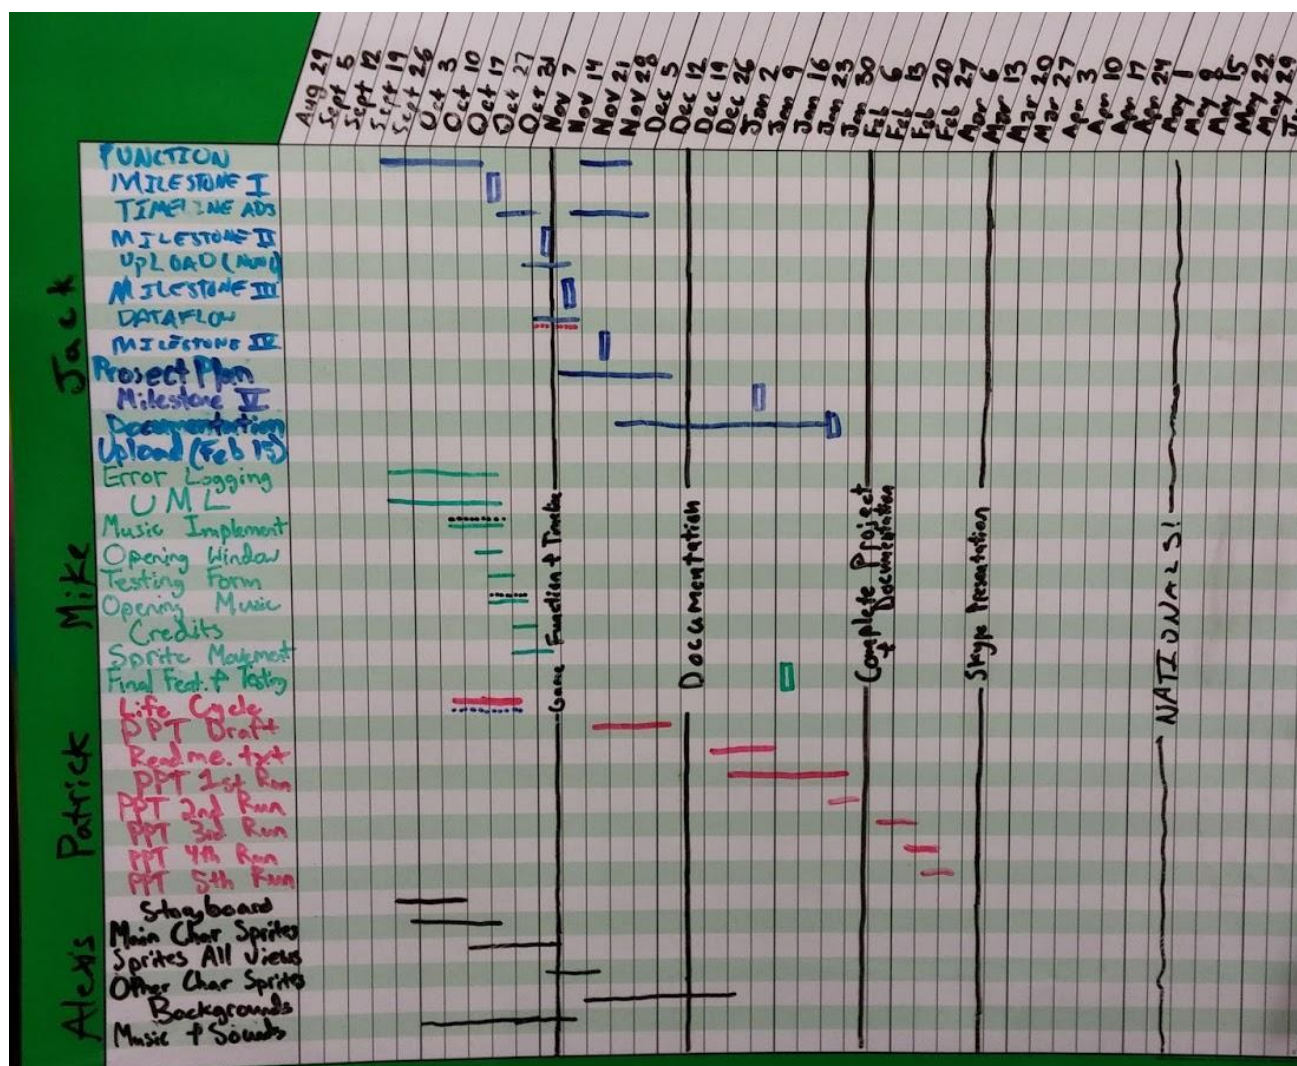 Aug 29
Sept 5
Sept 12
Sept 19
Sept 26
Oct 3
Oct 10
Oct 17
Oct 27
Oct 31
Nov 7
Nov 14
Nov 21
Nov 28
Dec 5
Dec 12
Dec 19
Dec 26
Jan 2
Jan 9
Jan 16
Jan 23
Jan 30
Feb 6
Feb 13
Feb 20
Feb 27
Mar 6
Mar 13
Mar 20
Mar 27
Apr 3
Apr 10
Apr 17
Apr 24
May 1
May 8
May 15
May 22
May 29
Jack
FUNCTION
MILESTONE I
TIMELINE ADJ
MILESTONE II
UPLOAD (Nov 1)
MILESTONE III
DATAFLOW
MILESTONE IV
Project Plan
Milestone V
Documentation
Upload (Feb 15)
Mike
Error Logging
UML
Music Implement
Opening Window
Testing Form
Opening Music
Credits
Sprite Movement
Final Feat. & Testing
Patrick
Life Cycle
PPT Draft
Readme.txt
PPT 1st Run
PPT 2nd Run
PPT 3rd Run
PPT 4th Run
PPT 5th Run
Alexis
Storyboard
Main Char Sprites
Sprites All Views
Other Char Sprites
Backgrounds
Music + Sounds
Game Function + Timeline
Documentation
Complete Project
+ Documentation
Skype Presentation
NATIONALS!